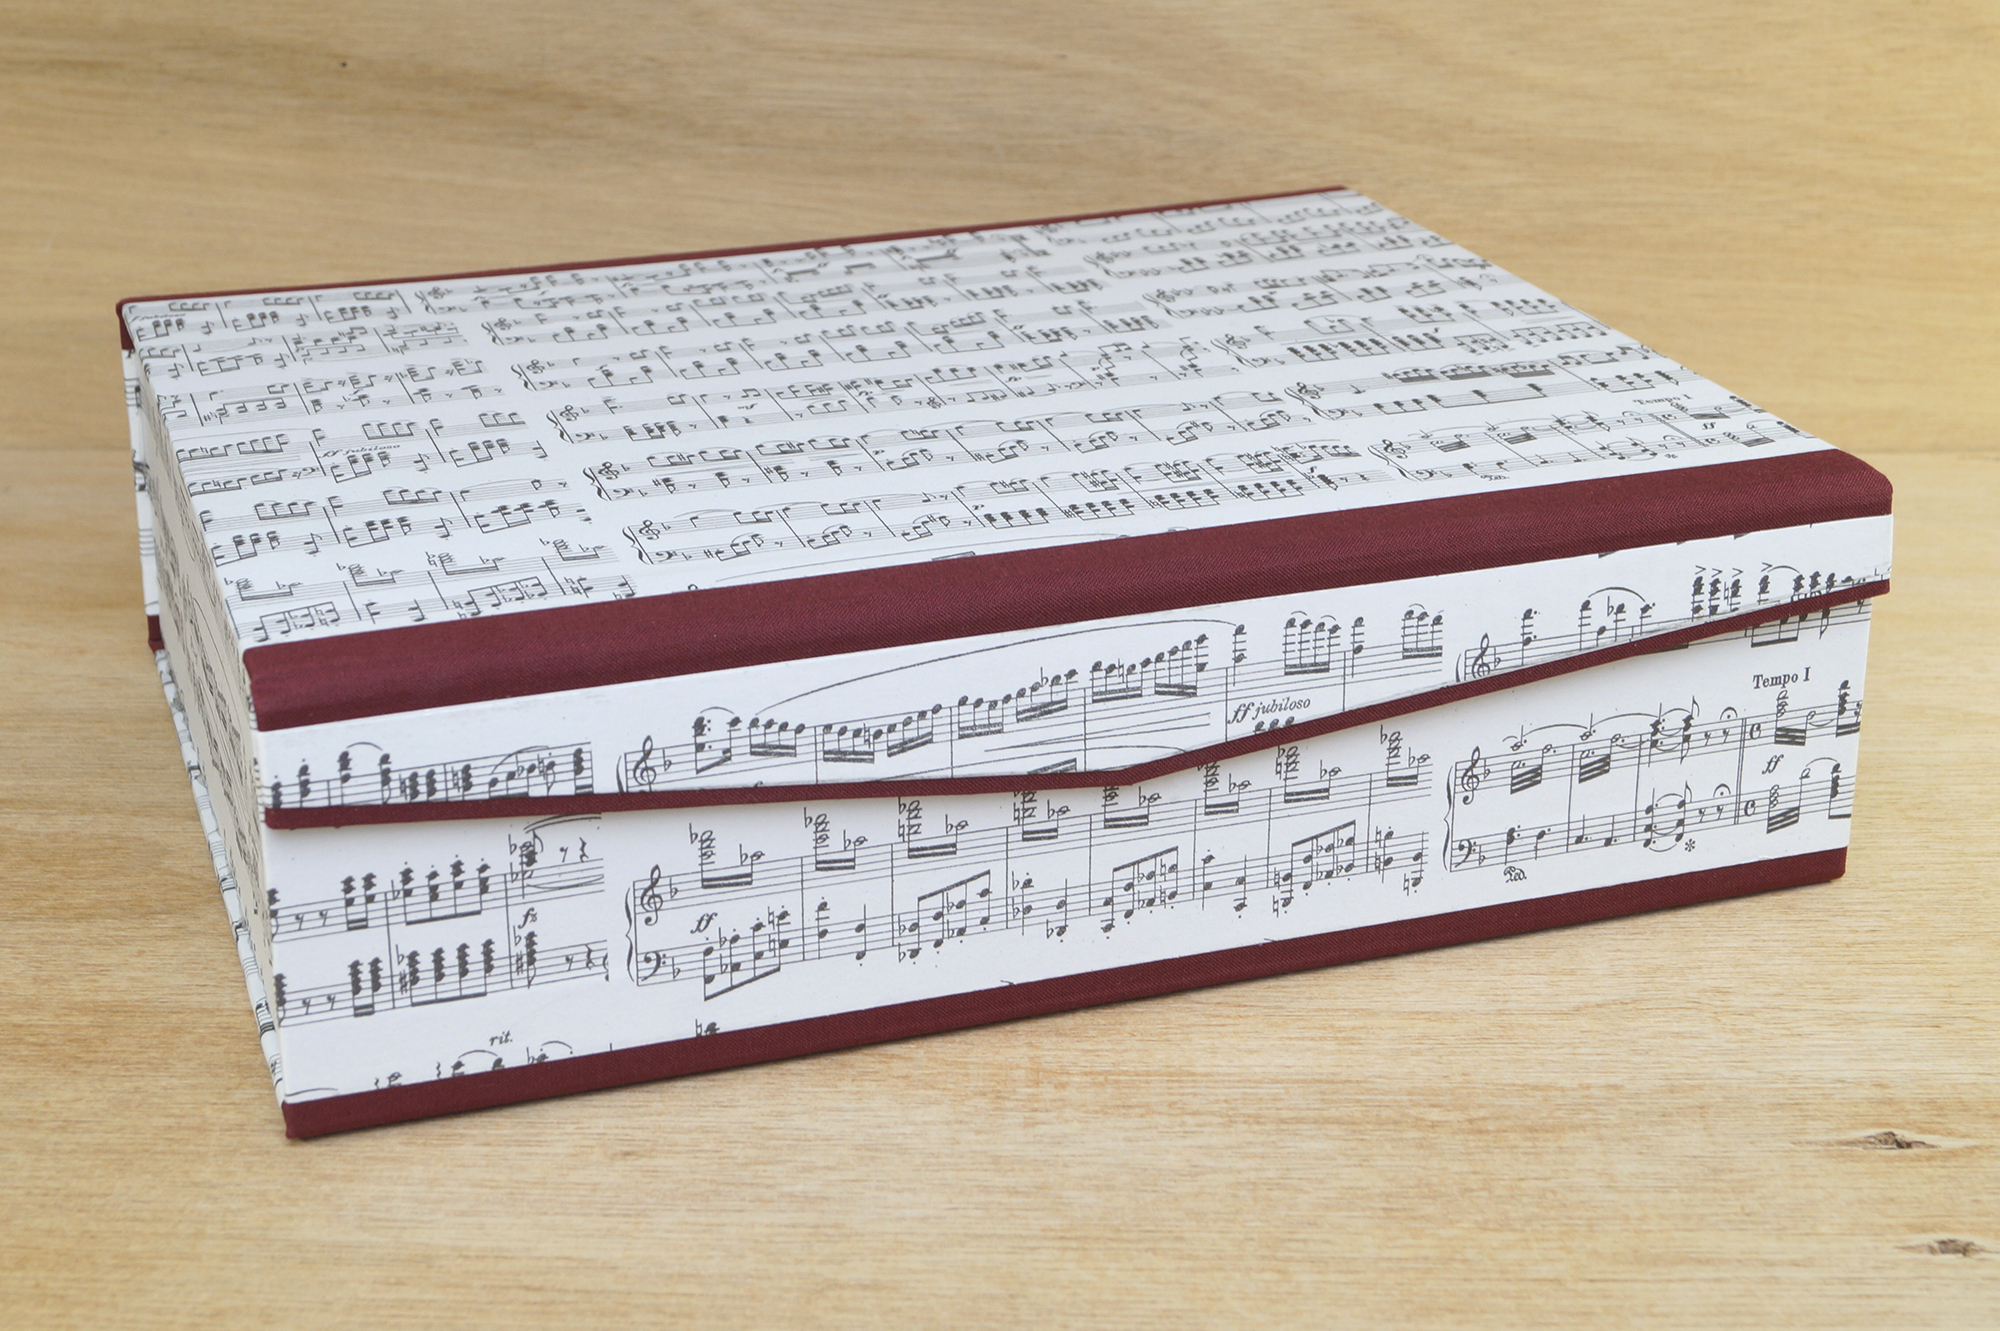 ff jubiloso
Tempo I
ff
ff jubiloso
Tempo I
ff
fz
ff
Ped.
*
rit.